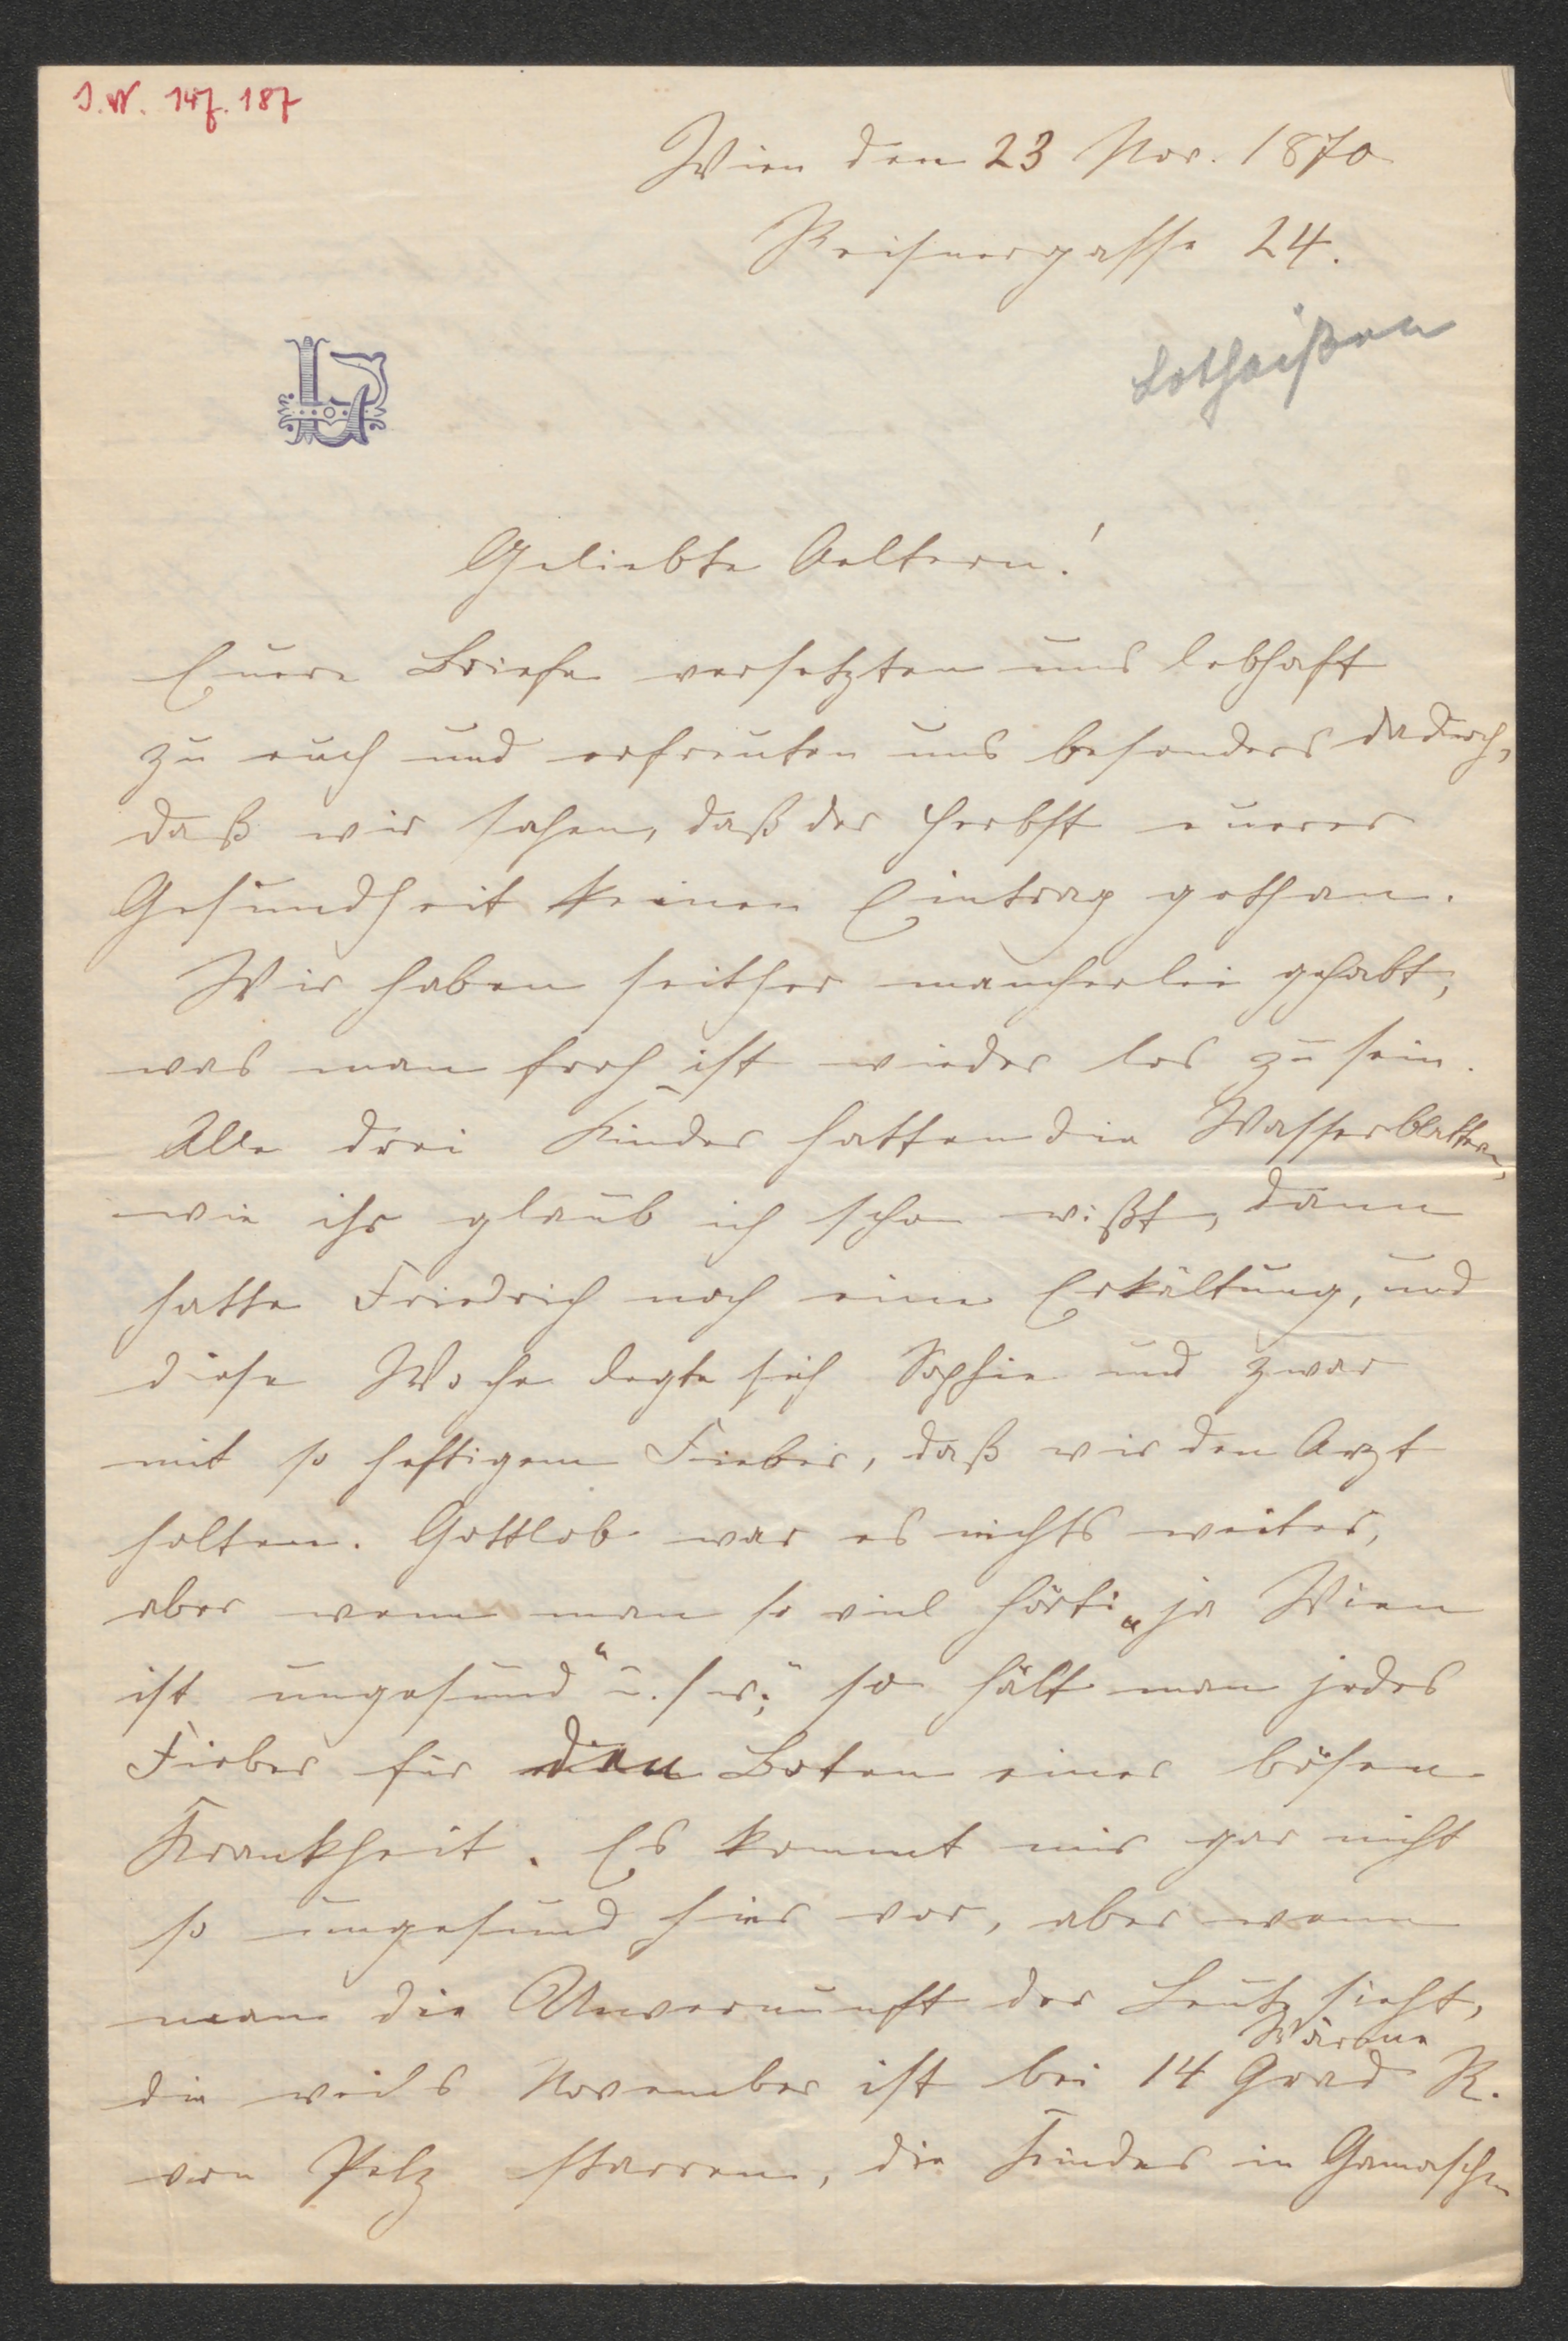 I.N. 147.187
Wien den 23 Nov. 1870
Reisnergasse 24.
Lotheißen
Geliebte Aeltern!
Euere Briefe versetzten uns lebhaft
zu euch und erfreuten uns besonders dadurch,
daß wir sahen, daß der Herbst euerer
Gesundheit keinen Eintrag gethan.
Wir haben seither mancherlei gehabt,
was man froh ist wieder los zu sein.
Alle drei Kinder hatten die Wasserblattern,
wie ihr glaub ich schon wißt, dann
hatte Friedrich noch eine Erkältung, und
diese Woche legte sich Sophie und zwar
mit so heftigem Fieber, daß wir den Arzt
holten. Gottlob war es nichts weiter,
aber wenn man so viel hört: „ja Wien
ist ungesund“ u. s w; so hält man jedes
Fieber für den Boten einer bösen
Krankheit. Es kommt mir gar nicht
so ungesund hier vor, aber wenn
man die Unvernunft der Leute sieht,
Wärme
die weils November ist bei 14 Grad R.
von Pelz starren, die Kinder in Gamaschen